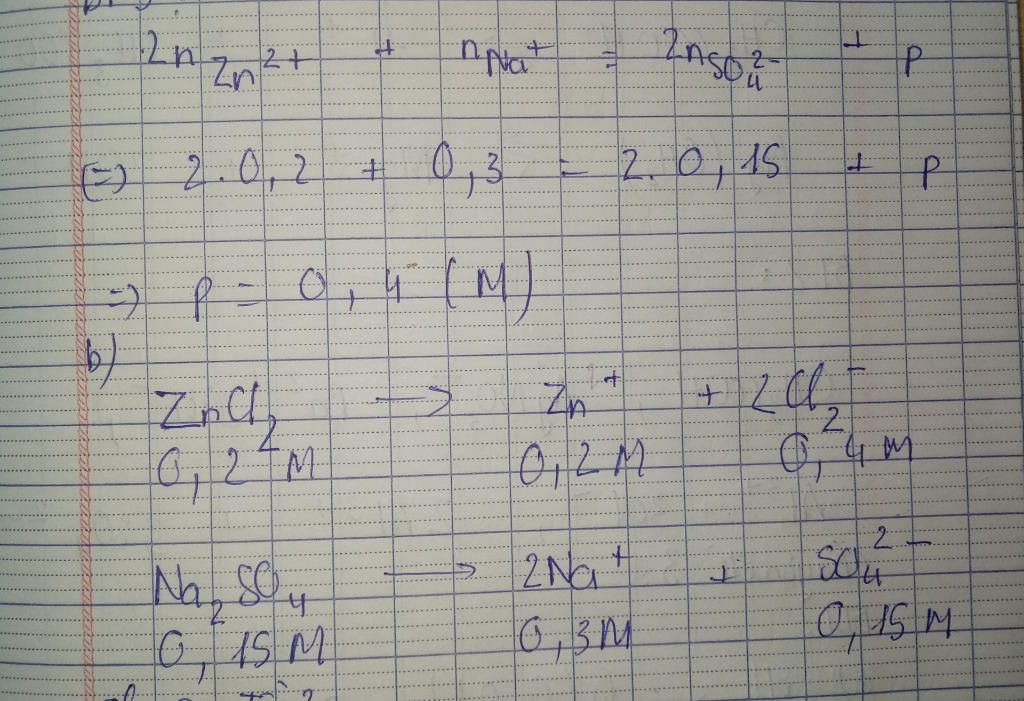 2n Zn²⁺ + n Na⁺ = 2n SO₄²⁻ + p
(=) 2.0,2 + 0,3 = 2.0,15 + p
=) p = 0,4 (M)
b)
ZnCl₂ → Zn²⁺ + 2Cl₂⁻
0,2M 0,2M 0,4M
Na₂SO₄ → 2Na⁺ + SO₄²⁻
0,15M 0,3M 0,15M